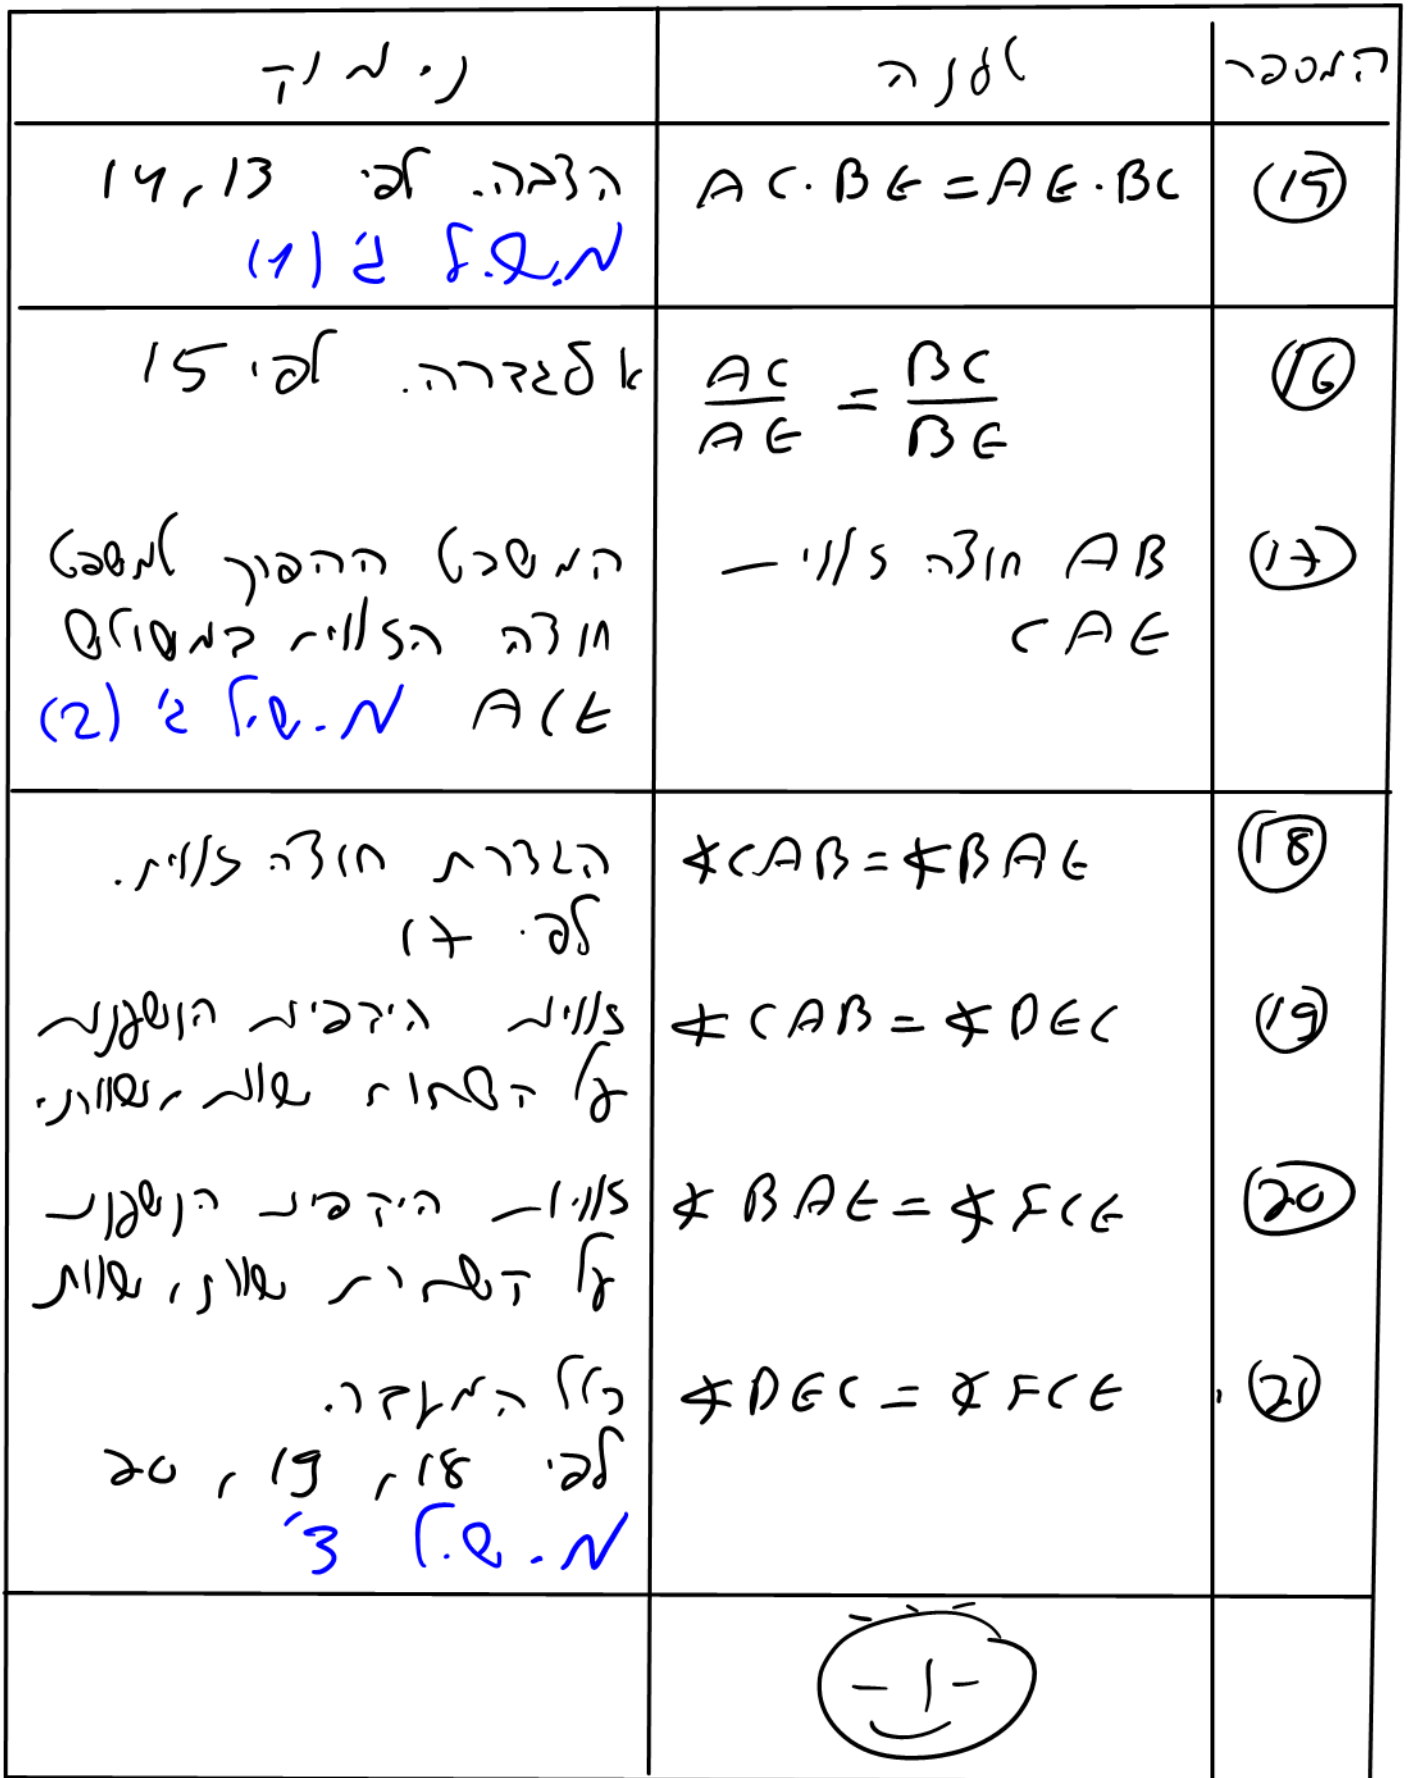 המספר טענה נימוק
(15) AC·BE=AE·BC הצבה. לפי 13, 14
מ.ש.ל ג' (1)
(16) AC/AE = BC/BE אלגברה. לפי 15
(17) AB חוצה זווית המשפט ההפוך למשפט
CAE חוצה הזווית במשולש
ACE מ.ש.ל ג' (2)
(18) ∢CAB=∢BAE הגדרת חוצה זווית.
לפי 17
(19) ∢CAB=∢DEC זוויות היקפיות הנשענות
על קשתות שוות, שוות.
(20) ∢BAE=∢FCE זוויות היקפיות הנשענות
על קשתות שוות, שוות
(21) ∢DEC=∢FCE כלל המעבר.
לפי 18, 19, 20
מ.ש.ל